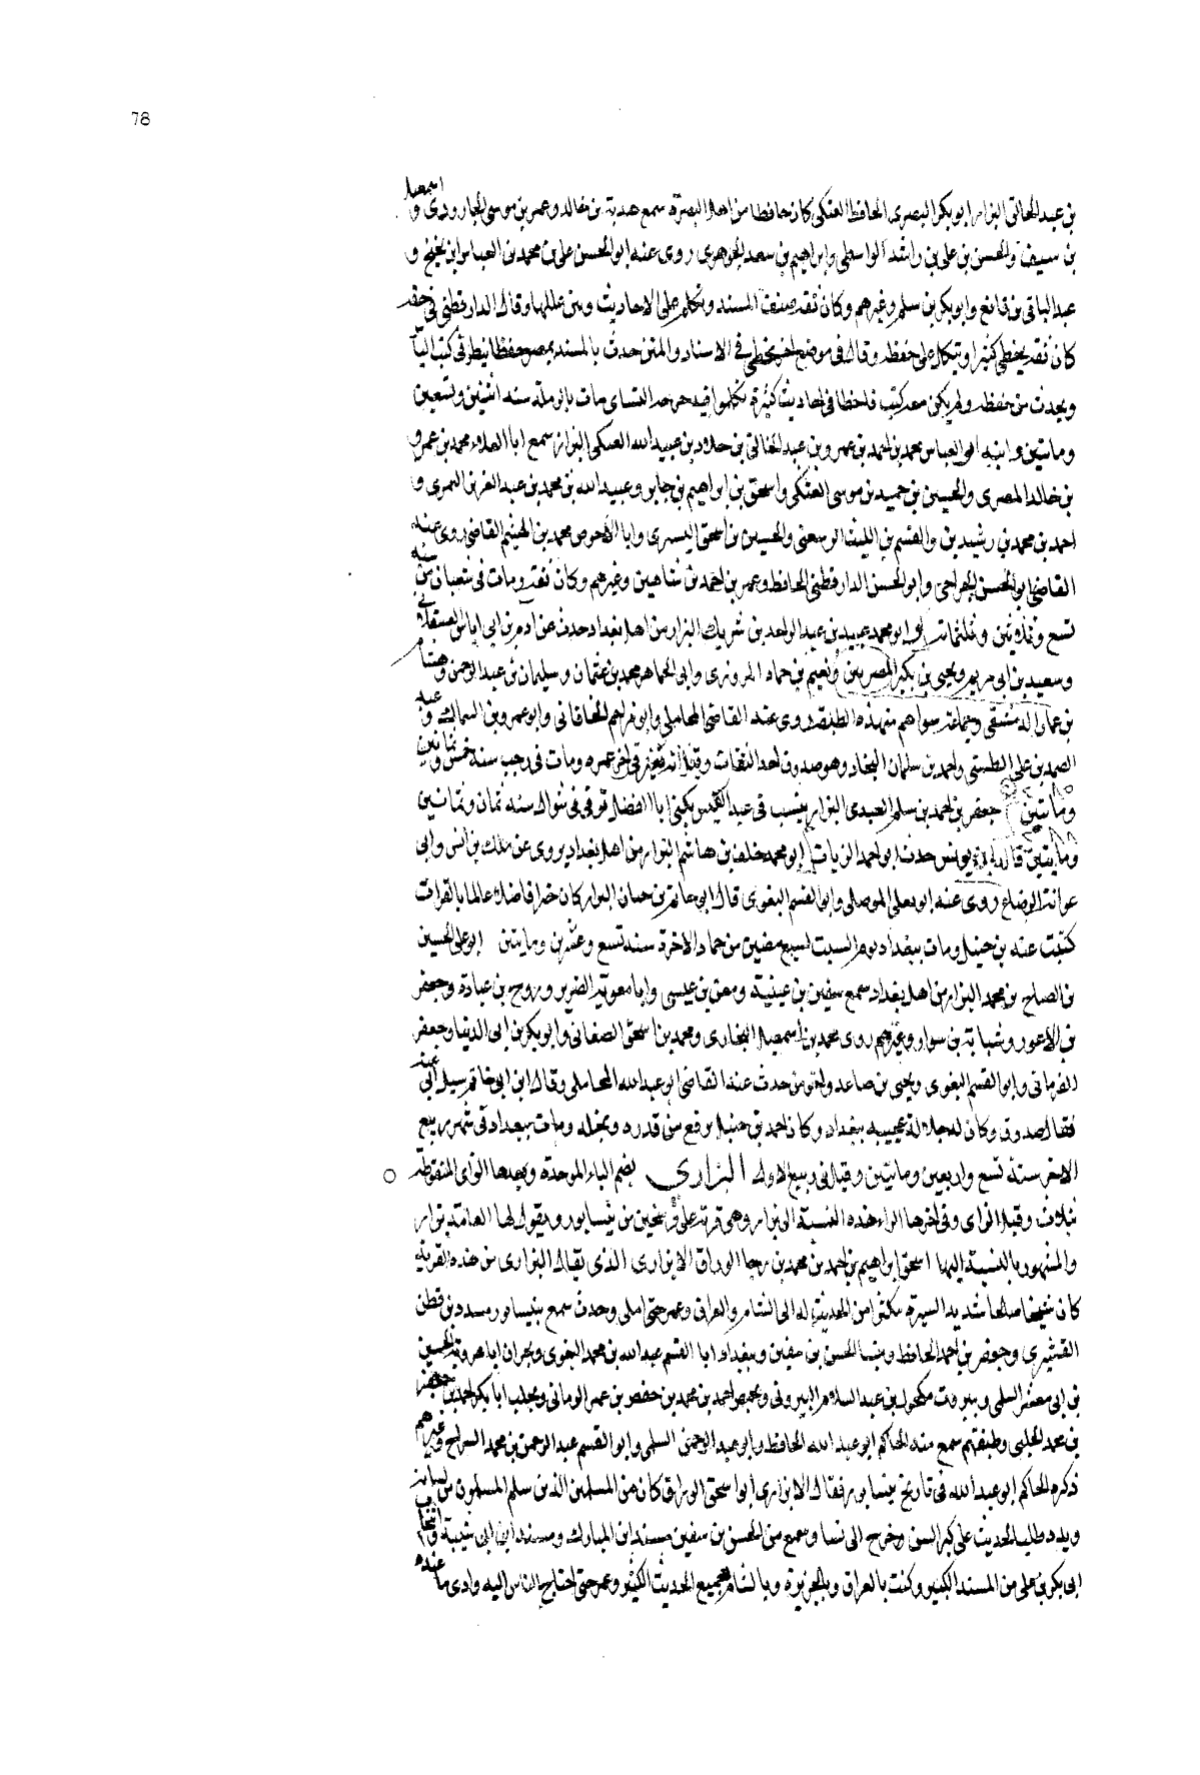 78
بن عبد الخالق البزار ابو بكر البصرى الحافظ العتكى كان حافظا من اهل البصرة سمع هدبة بن خالد وعمر بن موسى الجارودى و اسمعيل
بن سيف والحسن بن على بن راشد الواسطى وابراهيم بن سعد الجوهرى روى عنه ابو الحسن على بن محمد بن العباس ابن نجيح و
عبد الباقى بن قانع وابو بكر بن سلم وغيرهم وكان ثقة صنف المسند وتكلم على الاحاديث وبين عللها وقال الدارقطنى فى حقه
كان ثقة يخطى كثيرا ويتكل على حفظه وقال فى موضع اخر يخطى فى الاسناد والمتن حدث بالمسند بمصر حفظا ينظر فى كتب الناس
ويحدث من حفظه ولم يكن معه كتب فاخطا فى احاديث كثيرة تكلموا فيه جرحه النساى مات بالرملة سنه اثنتين وتسعين
وماتين وابنه ابو العباس محمد بن احمد بن عمرو بن عبد الخالق بن خلاد بن عبيد الله العتكى البزار سمع ابا العلاء محمد بن عمرو
بن خالد المصرى والحسين بن حميد بن موسى العتكى واسحق بن ابراهيم بن جابر وعبيد الله بن محمد بن عبد العزيز العمرى و
احمد بن محمد بن رشيد بن والقسم بن الليث الرسعنى والحسين بن اسحق التسترى وابا الاحوص محمد بن الهيثم القاضى روى عنه
القاضى ابو الحسن الجراحى وابو الحسن الدارقطنى الحافظ وعمر بن احمد بن شاهين وغيرهم وكان ثقة ومات فى شعبان من سنه
تسع وثلاثين وثلثمائة وابو محمد عبيد بن عبد الواحد بن شريك البزار من اهل بغداد حدث عن آدم بن ابى اياس العسقلانى
وسعيد بن ابى مريم ويحيى بن بكير المصريين ونعيم بن حماد المروزى وابى الجماهر محمد بن عثمان وسليمان بن عبد الرحمن وهشام
بن عمار الدمشقى وجماعة سواهم من هذه الطبقة روى عنه القاضى المحاملى وابو مزاحم الخاقانى وابو عمرو بن السماك وعبد
الصمد بن على الطستى واحمد بن سلمان النجاد وهو صدوق احد الثقات وقيل انه تغير فى اخر عمره ومات فى رجب سنة خمس وثمانين
وماتين جعفر بن احمد بن سلم العبدى البزار ينسب فى عبد القيس يكنى ابا الفضل توفى فى شوال سنه ثمان وثمانين
وماتين قاله ابن يونس حدث ابو احمد الزيات ابو محمد خلف بن هشام البزار من اهل بغداد يروى عن ملك بن انس وابى
عوانة الوضاح روى عنه ابو يعلى الموصلى وابو القسم البغوى قال ابو حاتم بن حبان البزار كان خيرا فاضلا عالما بالقراات
كتبت عنه بن حنبل ومات ببغداد يوم السبت لسبع مضين من جماد الاخرة سنه تسع وعشرين وماتين ابو على الحسين
بن الصباح بن محمد البزار من اهل بغداد سمع سفين بن عيينة ومعن بن عيسى وابا معوية الضرير وروح بن عبادة وجعفر
بن الاعور وشبابة بن سوار وغيرهم روى محمد بن اسمعيل البخارى ومحمد بن اسحق الصغانى وابو بكر بن ابى الدنيا وجعفر
الفريابى وابو القسم البغوى ويحيى بن صاعد واخر من حدث عنه القاضى ابو عبد الله المحاملى وقال ابن ابى حاتم سيل ابى عنه
فقال صدوق وكان له جلالة عجيبه ببغداد وكان احمد بن حنبل يرفع من قدره ويجله ومات ببغداد فى شهر ربيع
الاخر سنة تسع واربعين وماتين وقيل فى ربيع الاول البزارى بضم الباء الموحدة وبعدها الزاى المنقوطة
بثلاث وقبل الزاى وفى اخرها الراء هذه النسبة الى بزار وهى قرية على فرسخين من نيسابور ويقول لها العامة بزار
والمشهور بالنسبة اليها اسحق ابراهيم بن احمد بن محمد بن رجا الوراق الابزارى الذى يقال البزارى من هذه القرية
كان شيخا صالحا شديد السيرة مكثرا من الحديث له الى الشام والعراق وعمر حتى املى وحدث سمع بنيسابور مسدد بن قطن
القشيرى وجعفر بن احمد الحافظ وبنسا الحسن بن سفين وببغداد ابا القسم عبد الله بن محمد البغوى وبحران ابا عروبة الحسين
بن ابى معشر السلمى وببيروت مكحول بن عبد السلام البيروتى وبحمص احمد بن محمد بن حفص بن عمر الومانى وبحلب ابا بكر احمد بن جعفر
بن محمد الحلبى وطبقتهم سمع منه الحاكم ابو عبد الله الحافظ وابو عبد الرحمن السلمى وابو القسم عبد الرحمن بن محمد السراج وغيرهم
ذكره الحاكم ابو عبد الله فى تاريخ نيسابور فقال الابزارى ابو اسحق الوراق كان من المسلمين الذين سلم المسلمون من لسانه
ويده طلب الحديث على كبر السن وخرج الى نسا وسمع من الحسن بن سفين مسند ابن المبارك ومسند ابن ابى شيبة و انتخاب
ابى بكر بن على من المسند الكبير وكتب بالعراق وبالجزيرة وبالشام جميع الحديث الكثير وعمر حتى احتاج الناس اليه وادى ما عنده